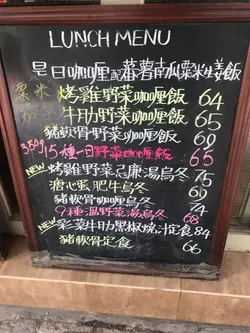 LUNCH MENU
是日咖喱配蕃薯南瓜粟米生姜飯
粟米 烤雞野菜咖喱飯 64
加子 牛肋野菜咖喱飯 65
豬軟骨野菜咖喱飯 69
15種一日野菜咖喱飯 65
NEW 烤雞野菜忌廉湯烏冬 75
溏心蛋肥牛烏冬 69
豬軟骨咖喱烏冬 74
9種溫野菜湯烏冬 68
NEW 彩菜牛肋黑椒燒汁定食 84
豬軟骨定食 66